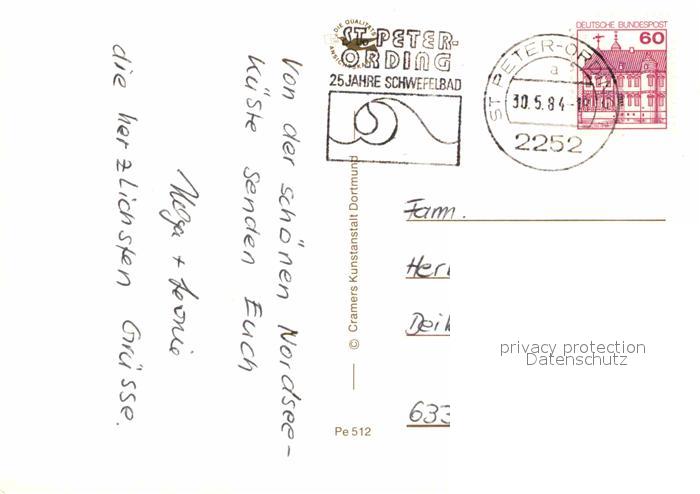 Von der schönen Nordsee-
Küste senden Euch
die herzlichsten Grüsse.
Helga +
DIE QUALITÄTS
ST. PETER-
ORDING
25 JAHRE SCHWEFELBAD
ST PETER-ORDING
a
30.5.84
2252
DEUTSCHE BUNDESPOST
60
© Cramers Kunstanstalt Dortmund
Pe 512
Fam.
633
privacy protection
Datenschutz